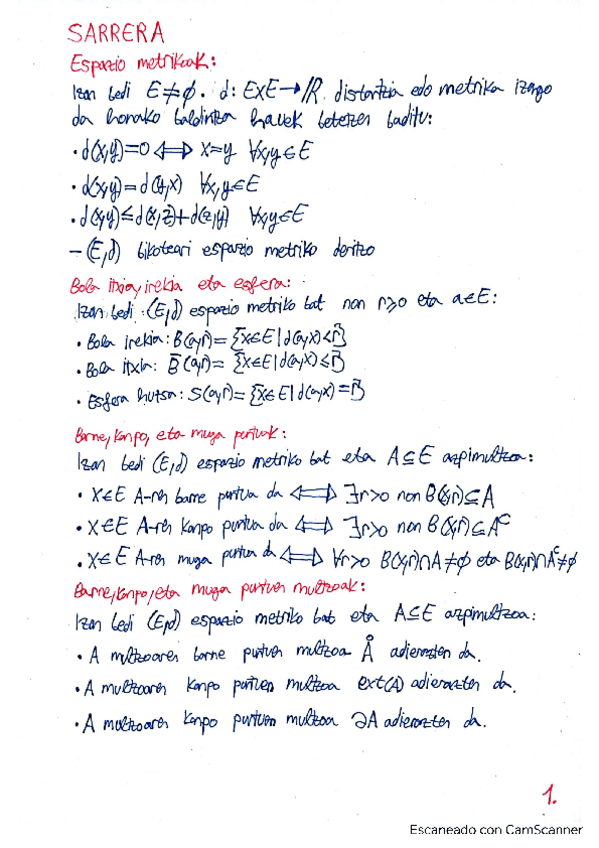 SARRERA
Espazio metrikoak:
Izan bedi E≠∅. d: E×E→ℝ distantzia edo metrika izango
da honako baldintza hauek betetzen baditu:
• d(x,y)=0 ⟺ x=y ∀x,y∈E
• d(x,y)=d(y,x) ∀x,y∈E
• d(x,y)≤d(x,z)+d(z,y) ∀x,y∈E
– (E,d) bikoteari espazio metriko deritzo
Bola itxia, irekia eta esfera:
Izan bedi (E,d) espazio metriko bat non r>0 eta a∈E:
• Bola irekia: B(a,r)={x∈E|d(a,x)<r}
• Bola itxia: B̄(a,r)={x∈E|d(a,x)≤r}
• Esfera hutsa: S(a,r)={x∈E|d(a,x)=r}
Barne, kanpo, eta muga puntuak:
Izan bedi (E,d) espazio metriko bat eta A⊆E azpimultzoa:
• x∈E A-ren barne puntua da ⟺ ∃r>0 non B(x,r)⊆A
• x∈E A-ren kanpo puntua da ⟺ ∃r>0 non B(x,r)⊆Aᶜ
• x∈E A-ren muga puntua da ⟺ ∀r>0 B(x,r)∩A≠∅ eta B(x,r)∩Aᶜ≠∅
Barne, kanpo, eta muga puntuen multzoak:
Izan bedi (E,d) espazio metriko bat eta A⊆E azpimultzoa:
• A multzoaren barne puntuen multzoa Å adierazten da.
• A multzoaren kanpo puntuen multzoa ext(A) adierazten da.
• A multzoaren kanpo puntuen multzoa ∂A adierazten da.
1.
Escaneado con CamScanner